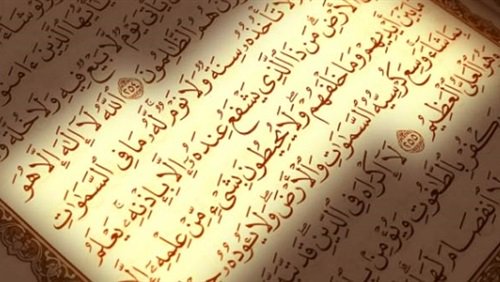 أَيُّهَا ٱلَّذِينَ ءَامَنُو
يَأْتِىَ يَوْمٌ لَّا بَيْعٌ فِيهِ وَلَا خُلَّةٌ وَ
نَ هُمُ ٱلظَّٰلِمُونَ ٢٥٤ ٱللَّهُ لَآ إِلَٰهَ إِلَّا هُوَ
لَا تَأْخُذُهُۥ سِنَةٌ وَلَا نَوْمٌ لَّهُۥ مَا فِى ٱلسَّمَٰوَٰتِ
ٱلْأَرْضِ مَن ذَا ٱلَّذِى يَشْفَعُ عِندَهُۥٓ إِلَّا بِإِذْنِهِۦ يَعْلَمُ
مَا بَيْنَ أَيْدِيهِمْ وَمَا خَلْفَهُمْ وَلَا يُحِيطُونَ بِشَىْءٍ مِّنْ عِلْمِهِۦٓ إِلَّا
بِمَا شَآءَ وَسِعَ كُرْسِيُّهُ ٱلسَّمَٰوَٰتِ وَٱلْأَرْضَ وَلَا يَـُٔودُهُۥ حِ
هُوَ ٱلْعَلِىُّ ٱلْعَظِيمُ ٢٥٥ لَآ إِكْرَاهَ فِى ٱلدِّينِ قَد تَّبَيَّ
كْفُرْ بِٱلطَّٰغُوتِ وَيُؤْمِنۢ بِٱ
ٱنفِصَامَ لَهَا